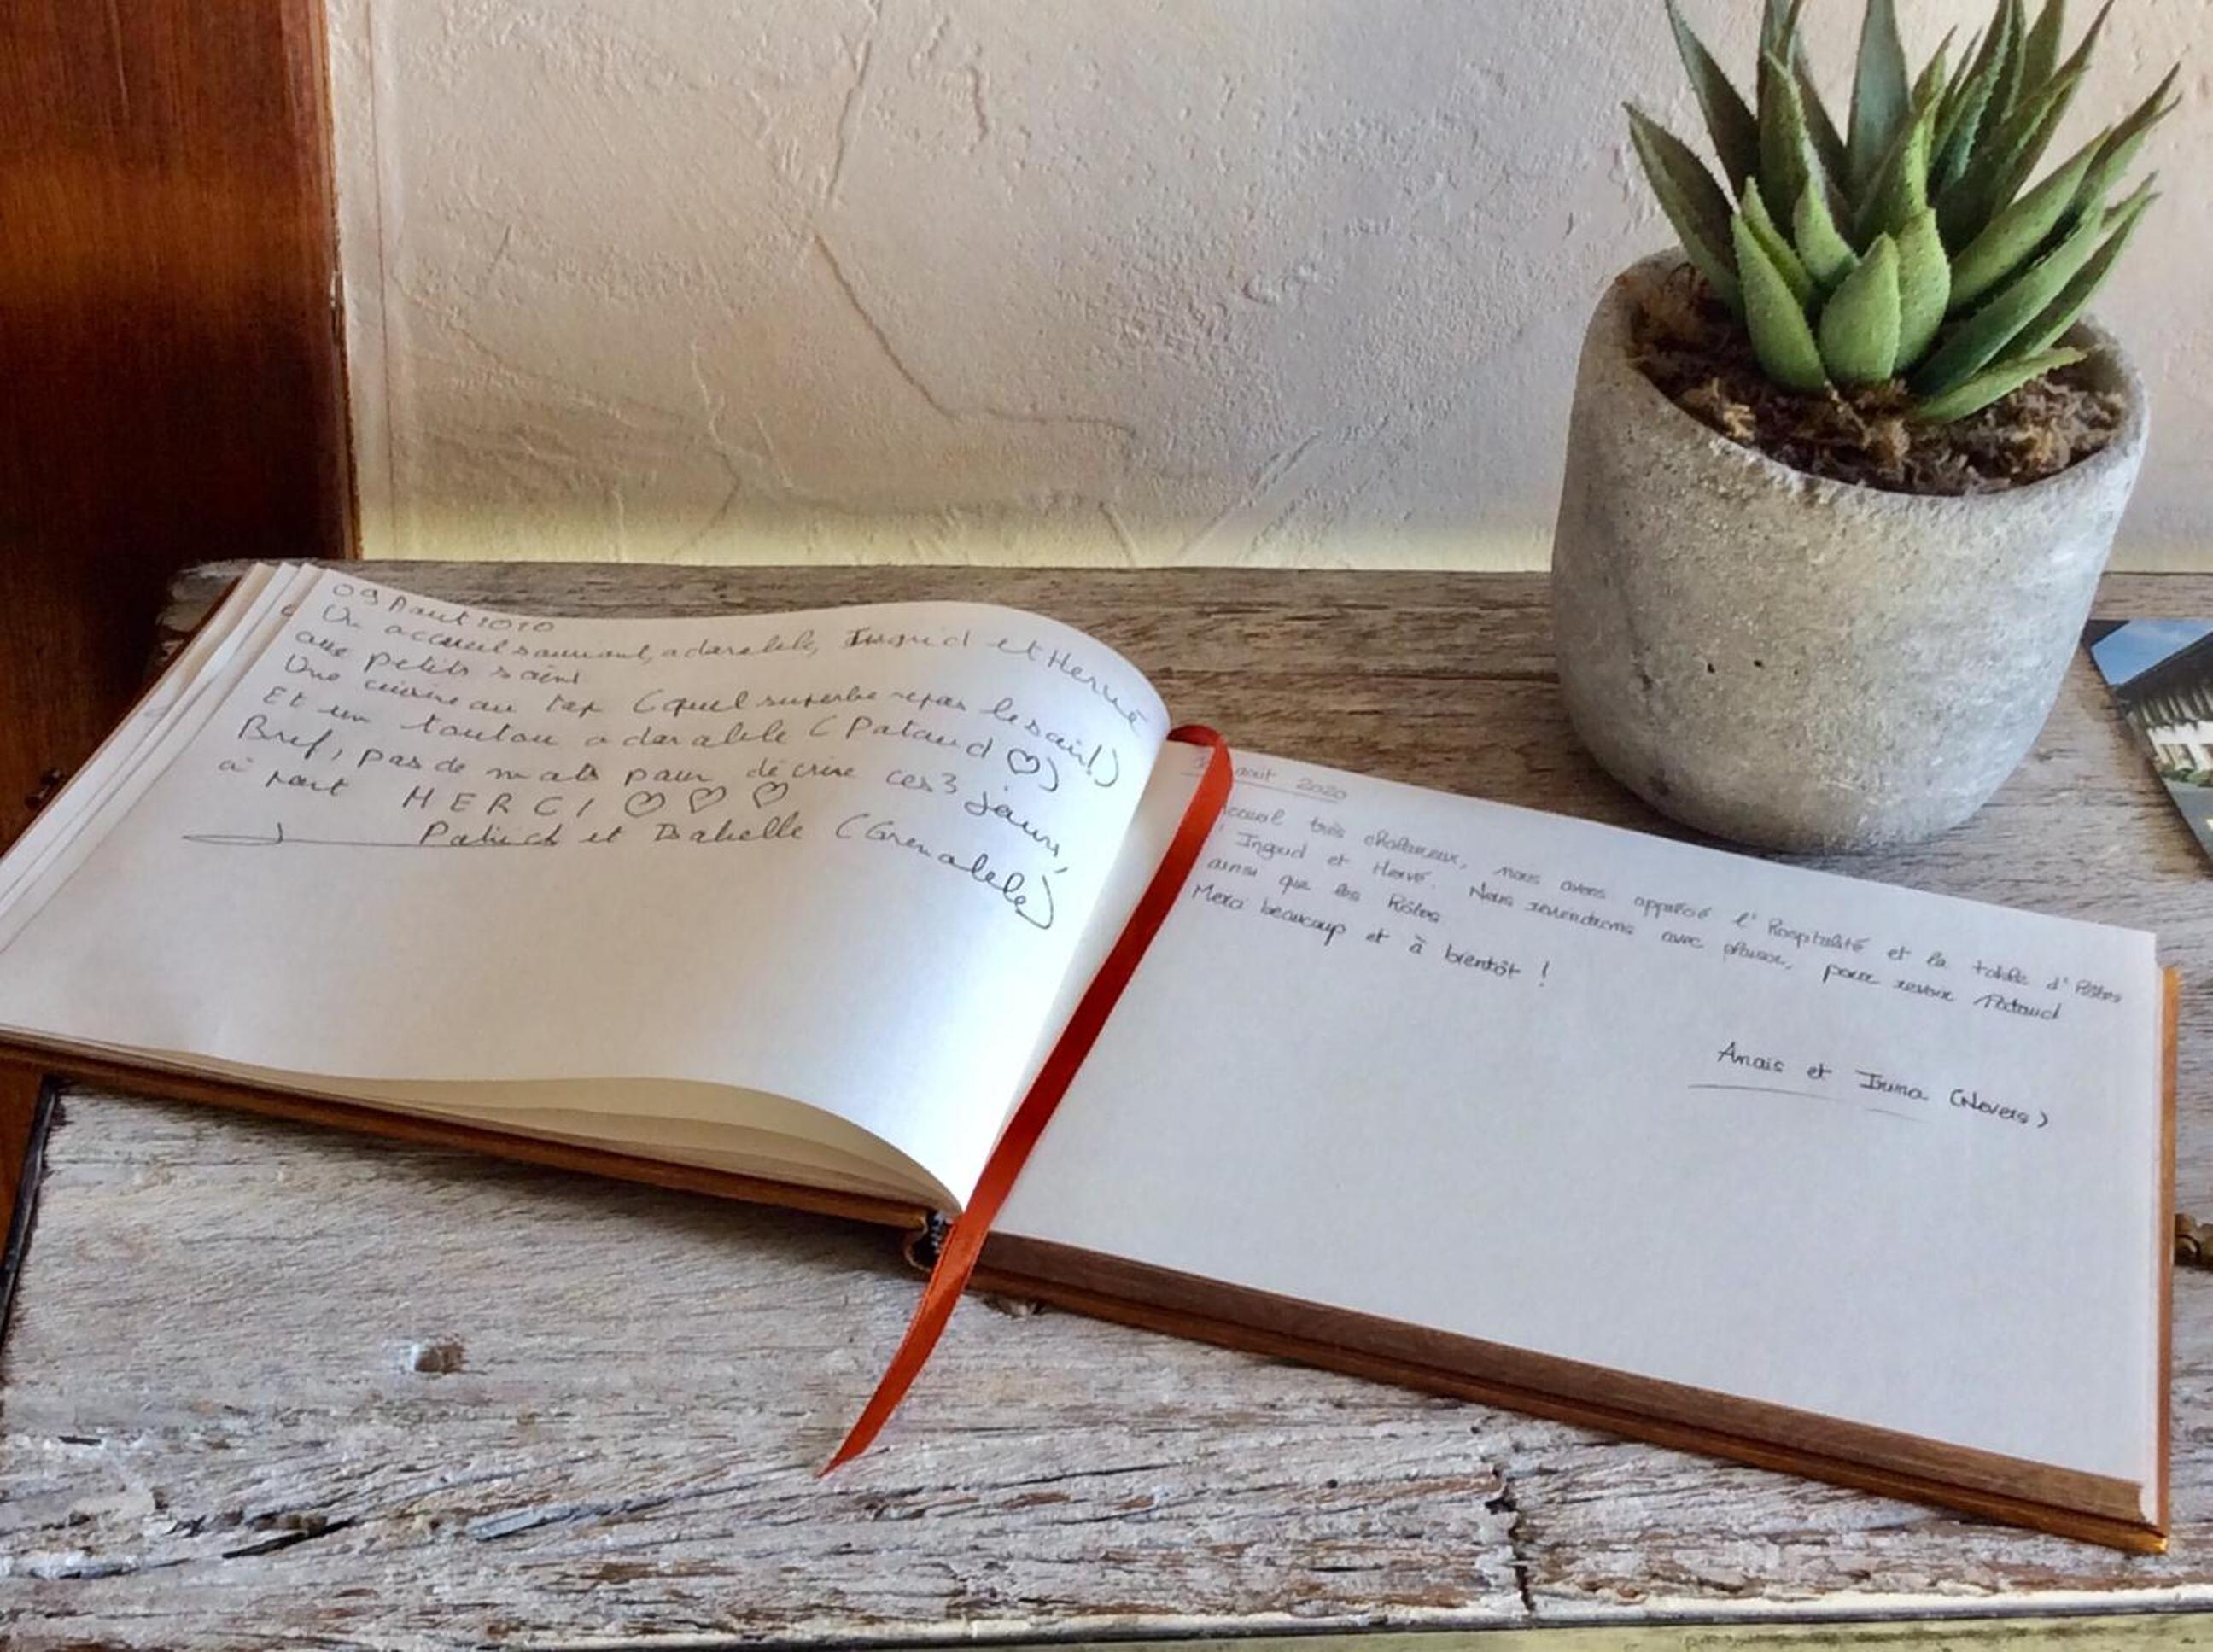 09 Aout 2020
Un accueil souriant, adorable, Ingrid et Hervé
aux petits soins
Une cuisine au top (quel superbe repas le soir!)
Et un toutou adorable (Pataud ♡)
Bref, pas de mots pour décrire ces 3 jours,
à part MERCI ♡ ♡ ♡
Patrick et Isabelle (Grenoble)
août 2020
ccueil très chaleureux, nous avons apprécié l'hospitalité et la table d'hôtes
d'Ingrid et Hervé. Nous reviendrons avec plaisir, pour revoir Pataud
ainsi que les hôtes
Merci beaucoup et à bientôt !
Anais et Iruma (Nevers)